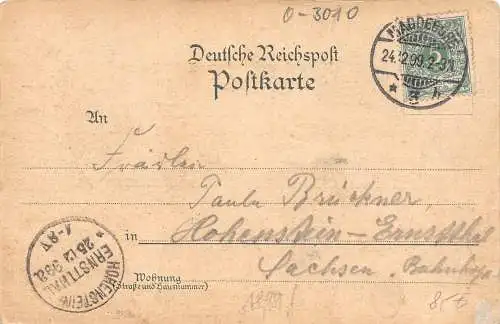 0-3010
MAGDEBURG
24.12.99.
* g h
Deutsche Reichspost
Postkarte
An
Fräulein
Paula Brückner,
in Hohenstein-Ernstthal
Sachsen Bahnhofs
Wohnung
(Straße und Hausnummer)
HOHENSTEIN-
ERNSTTHAL
25 12 99
1-8 V
1899!